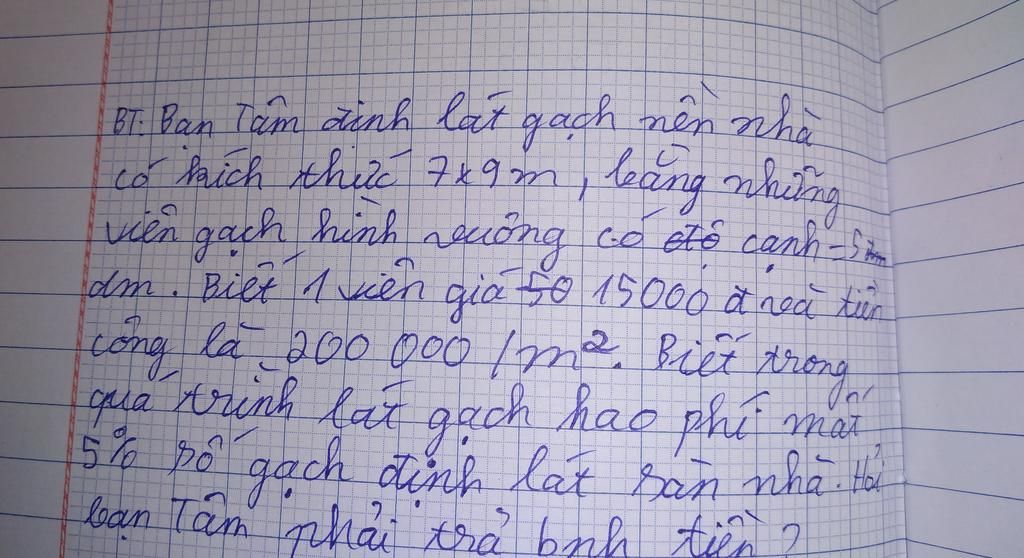 BT: Bạn Tâm định lát gạch nền nhà
có kích thức 7x9m, bằng những
viên gạch hình vuông có độ cạnh = 5
dm. Biết 1 viên giá 50 15000 đ và tiền
công là 200 000 /m². Biết trong
quá trình lát gạch hao phí mất
5% số gạch định lát sàn nhà. Hỏi
bạn Tâm phải trả bnh tiền?